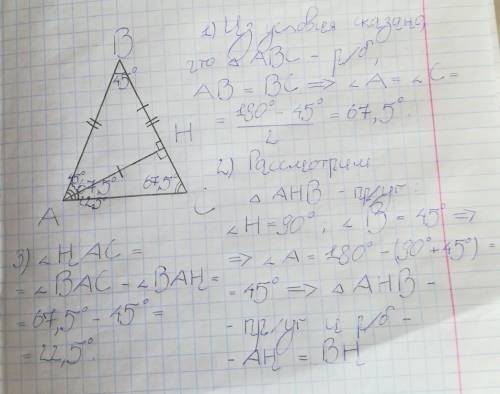 B
45°
H
45°
67,5°
22,5°
67,5°
A
C
1) Из условия сказано,
что △ABC - р/б,
AB = BC => ∠A = ∠C =
= 180° - 45° / 2 = 67,5°.
2) Рассмотрим
△AHB - пр/уг.
∠H = 90°, ∠B = 45° =>
=> ∠A = 180° - (90° + 45°) =
= 45° => △AHB -
- пр/уг и р/б -
- AH = BH
3) ∠HAC =
= ∠BAC - ∠BAH =
= 67,5° - 45° =
= 22,5°.